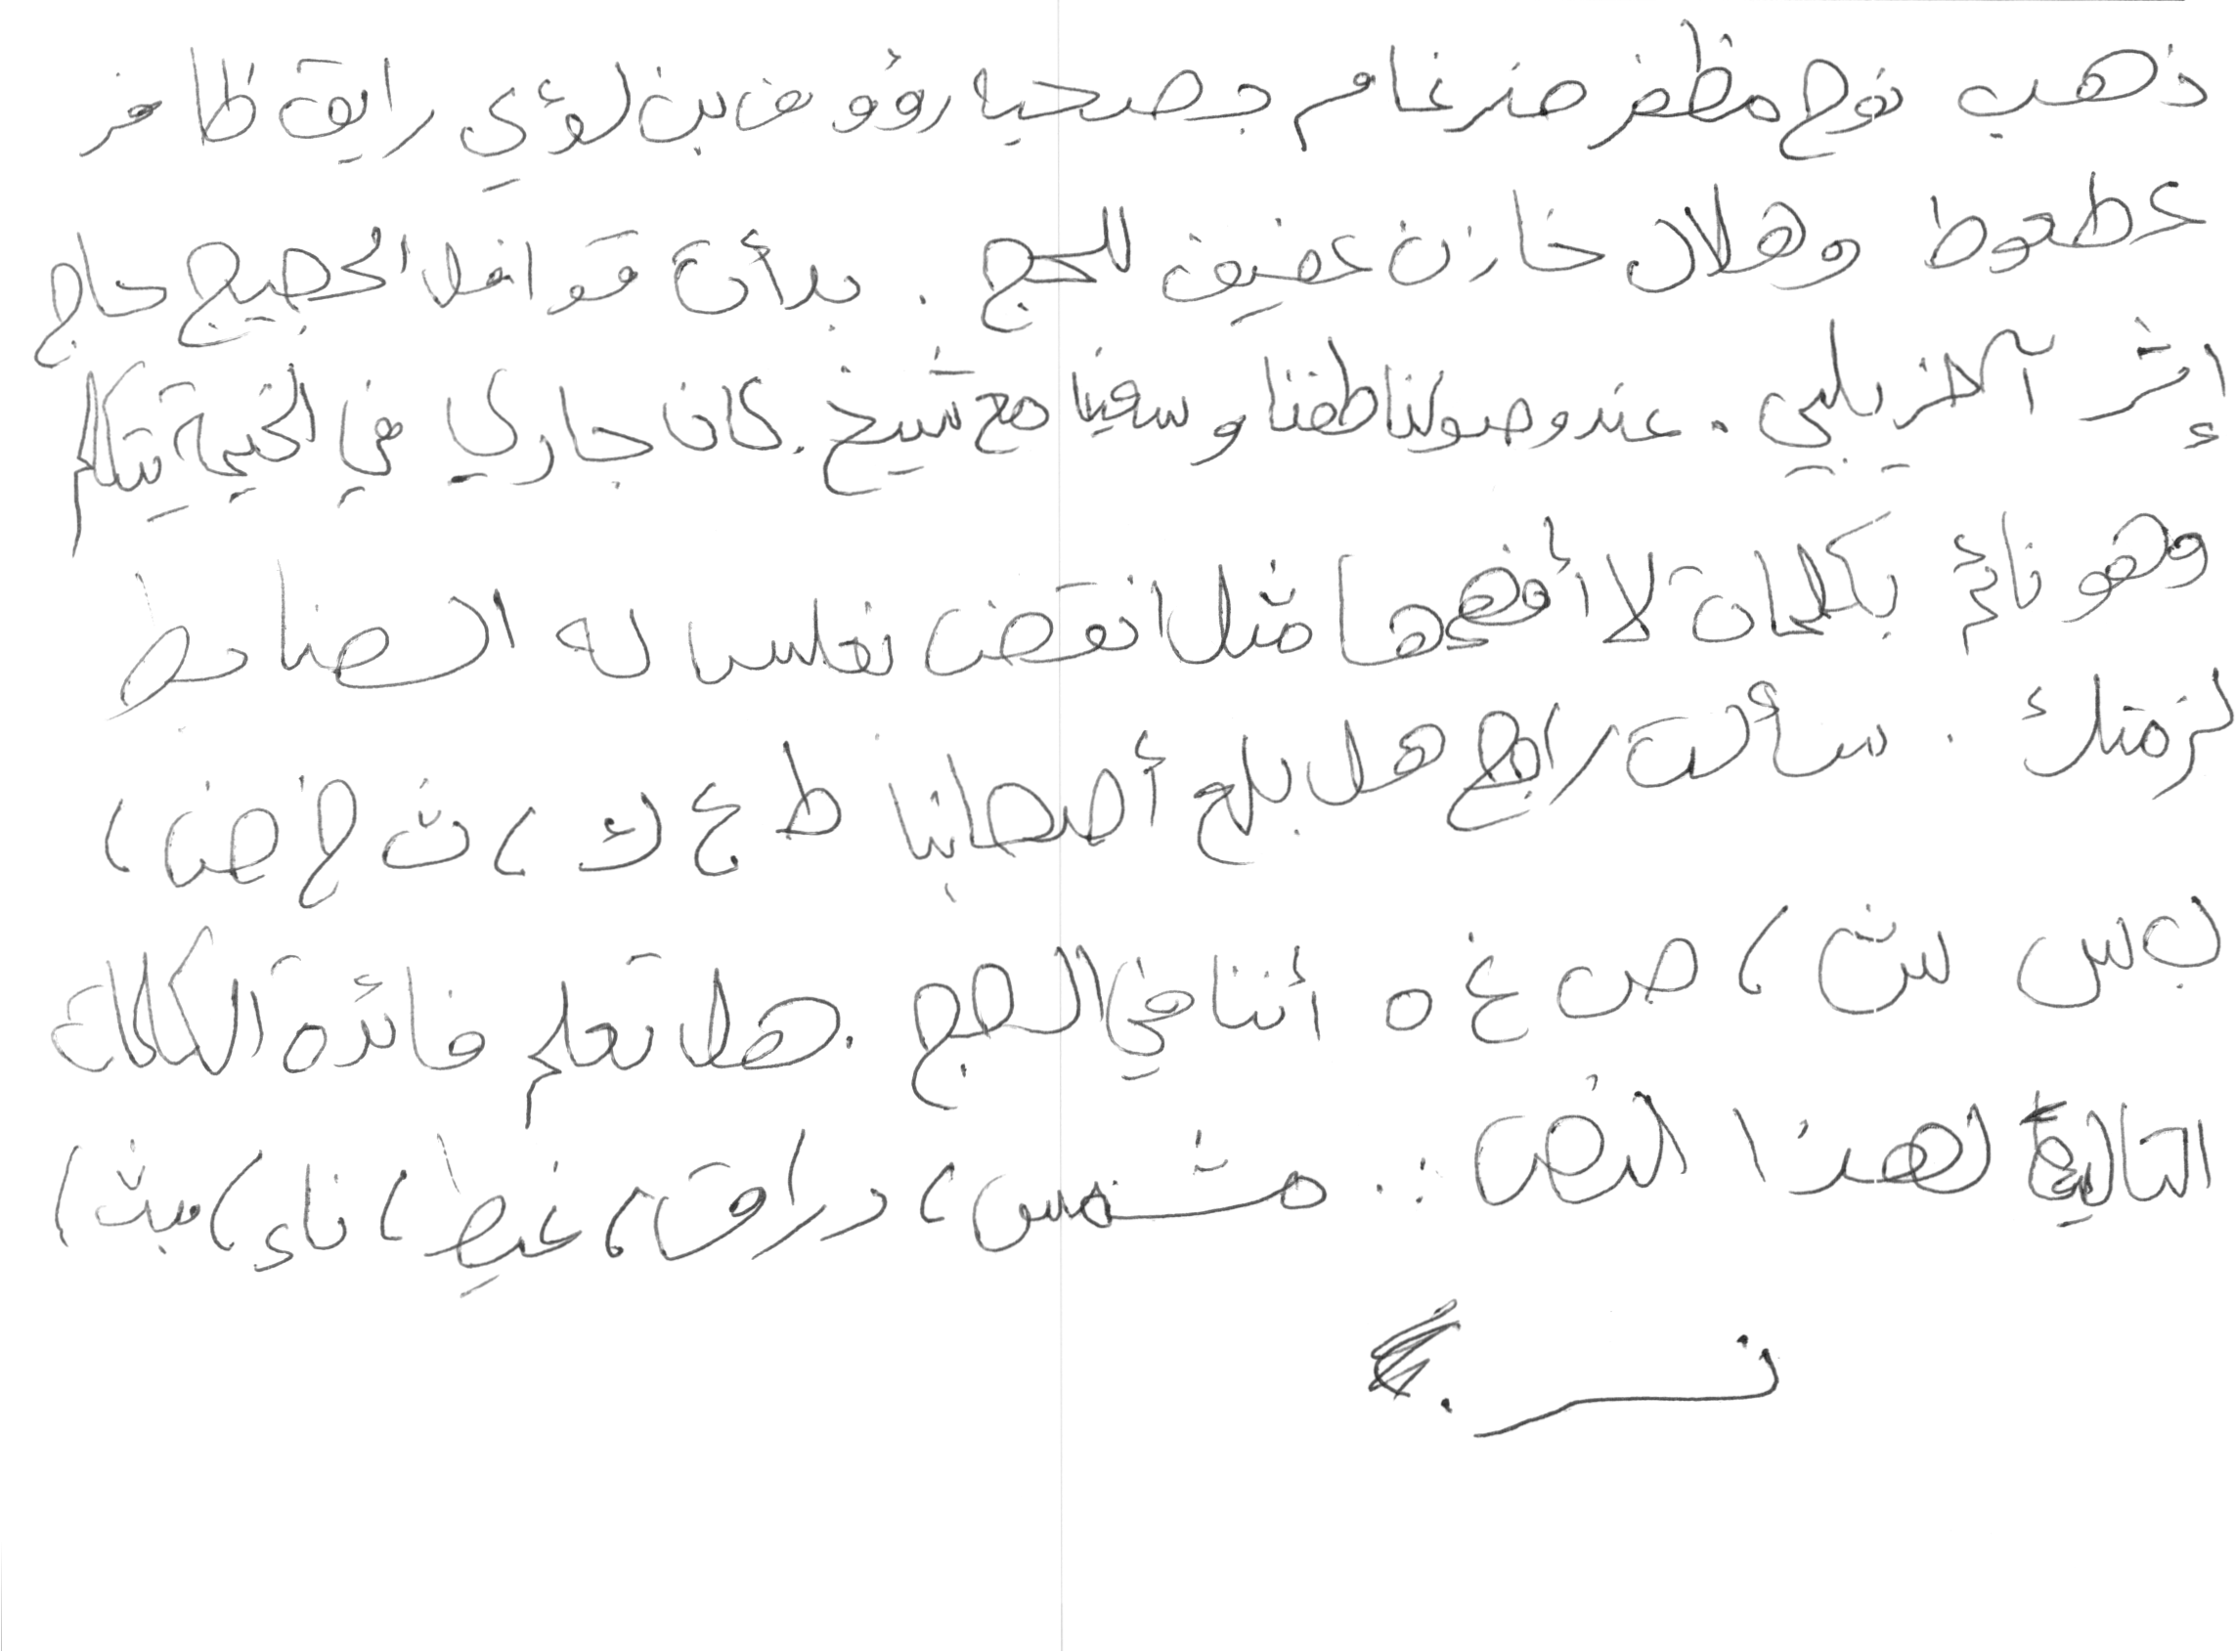 ذهب نوح مظفر ضرغام بصحبه رؤوف بن لؤي رايق ظافر
عطعوط وهلال خازن عفيف للحج . بدأت قوافل الحجيج حاج
إثر آخر يلبي . عند وصولنا طفنا وسعينا مع شيخ . كان جاري في الخيمة يتكلم
وهو نائم بكلمات لا أفهمها مثل انقض نفلس له الضابط
لزمتك . سألت رابح هل بلغ أصحابنا ط ع ك ، ث خ ض ،
ب س ش ، ص غ ه أننا في الحج . هل تعلم فائدة الكلمات
التالية لهذا النص : . مشمس ، دراق ، غيظ ، ناء ، مبث ،
نسر .